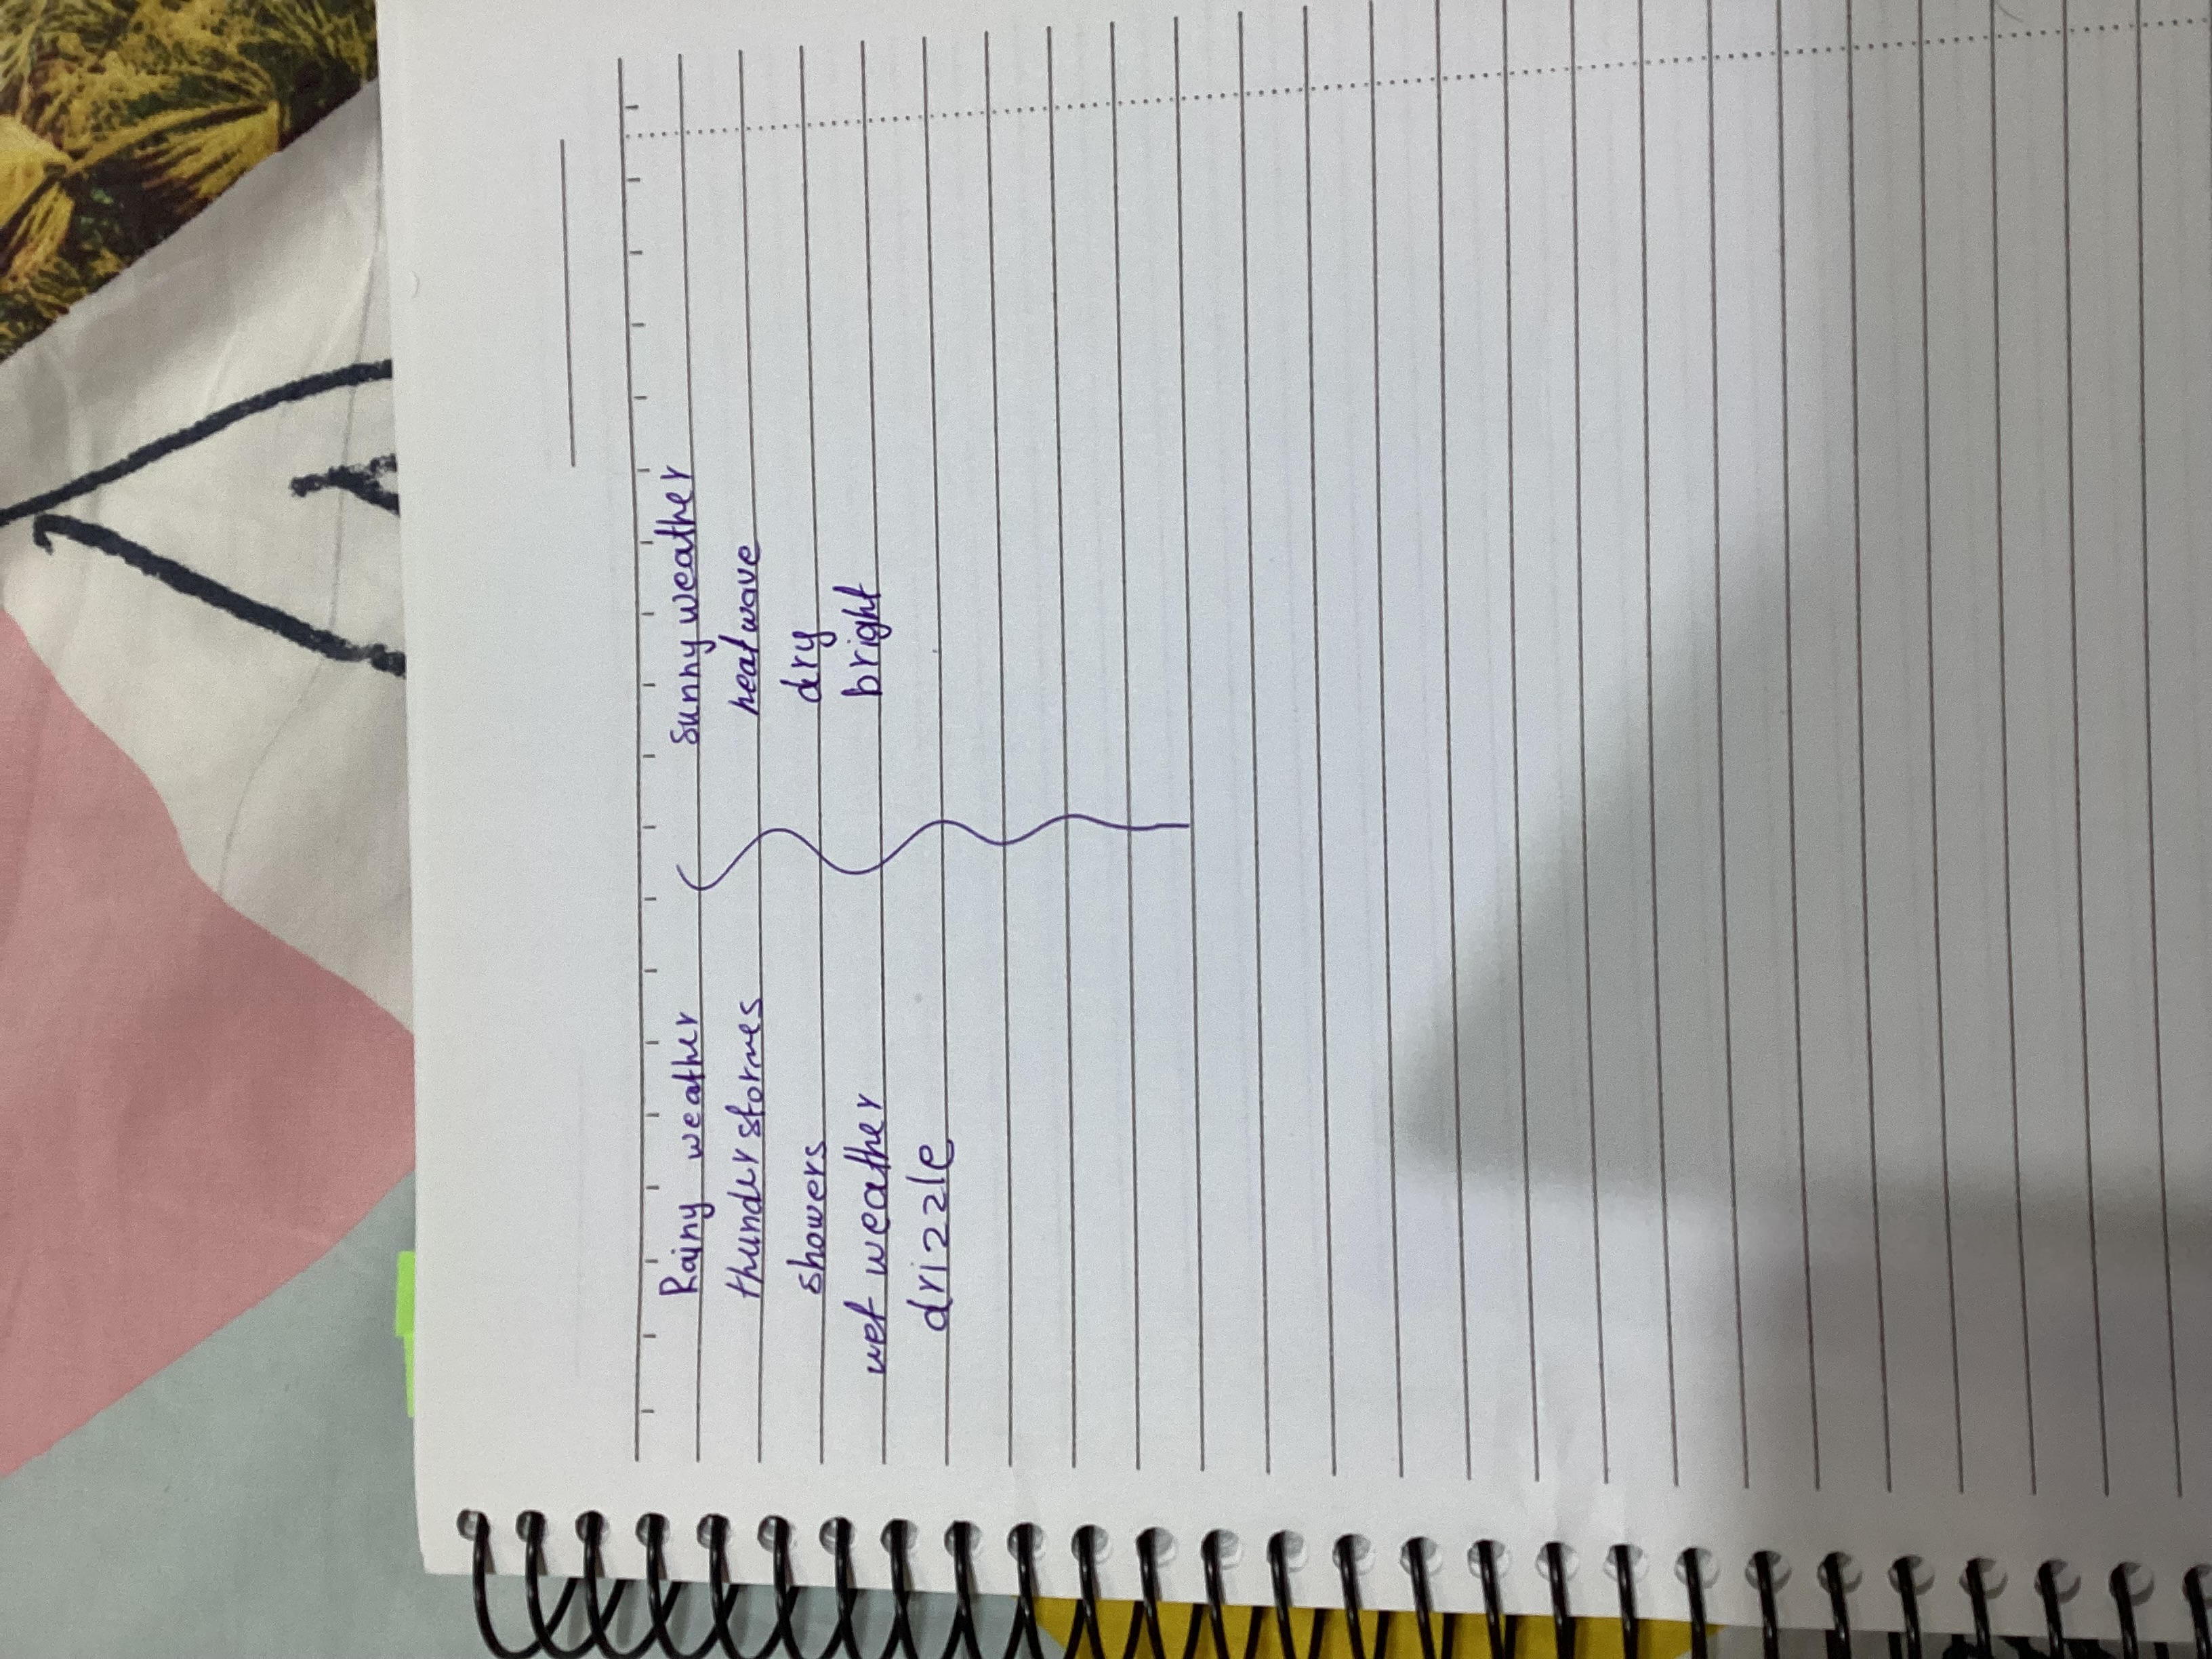 Rainy weather sunny weather
thunder stormes heat wave
showers dry
wet weather bright
drizzle